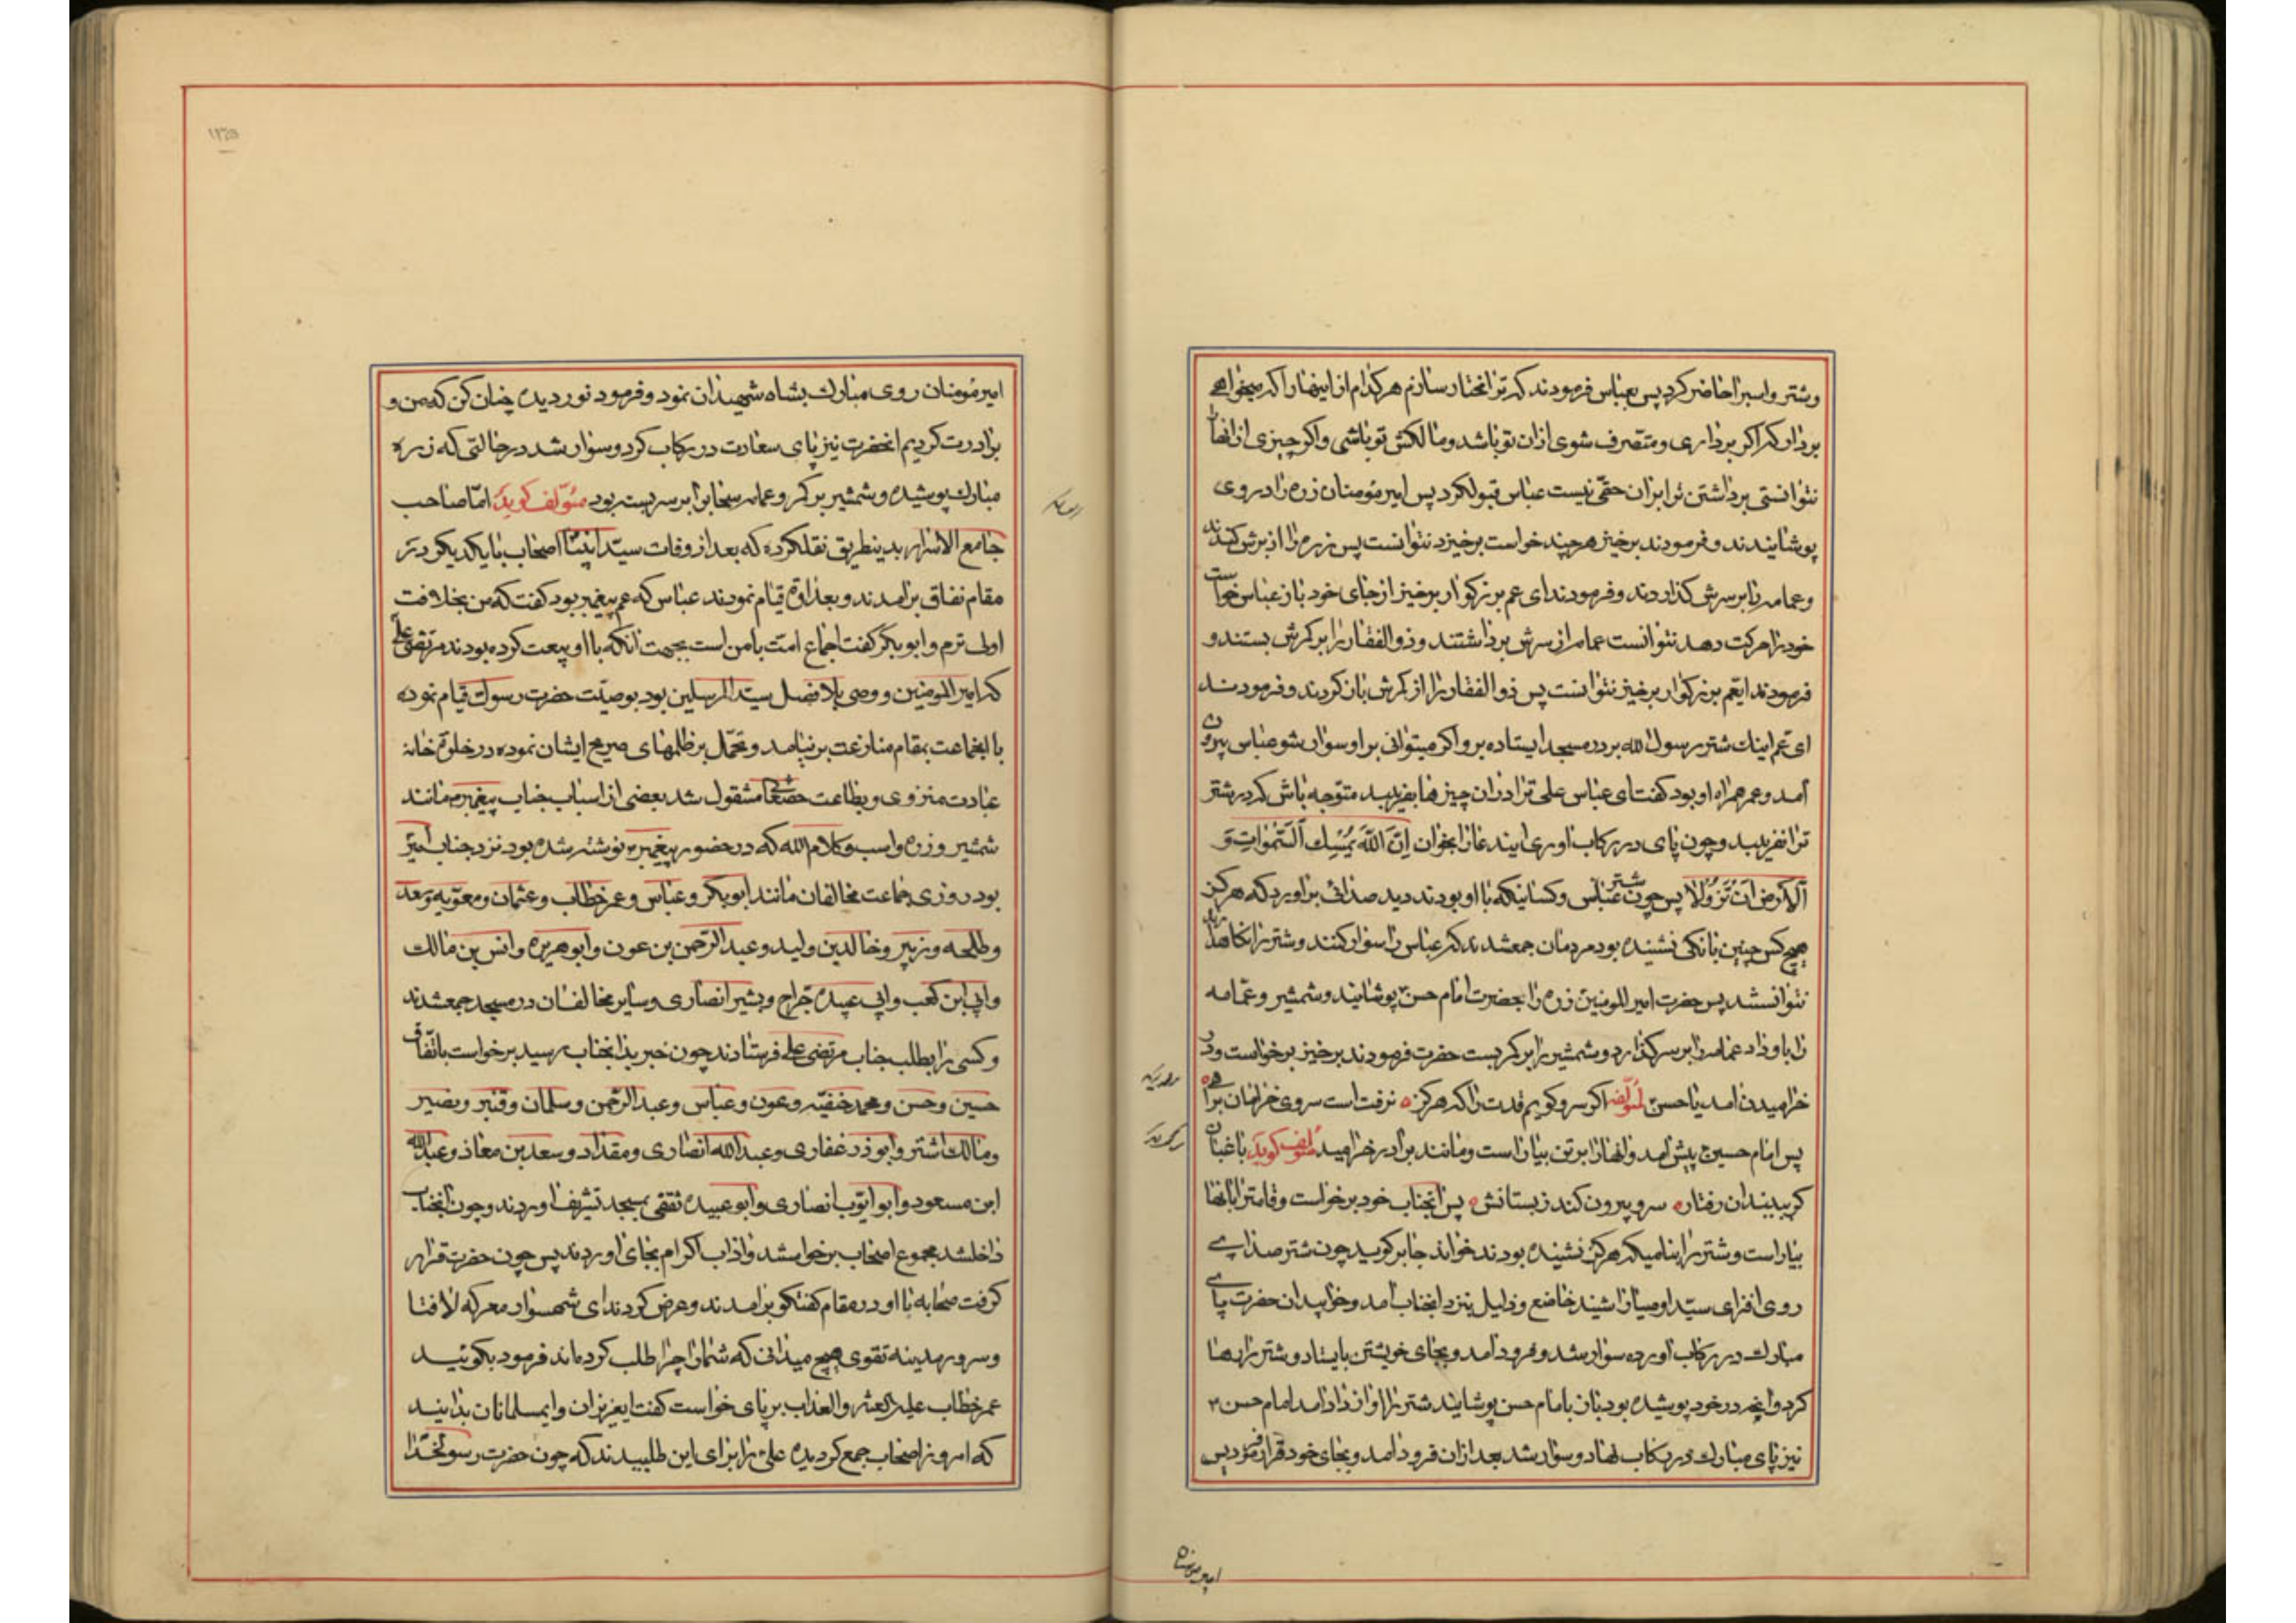 وشتر واسبرا حاضر کرد پس بعباس فرمودند که ترا مختار سازم هرکدام از اینها را که میخواهی
بردار که اکر برداری ومتصرف شوی ازان تو باشد ومالکش تو باشی واکر چیزی از انها
نتوانستی برداشتن ترا بران حقی نیست عباس قبولکرد پس امیر مومنان زره را در وی
پوشانیدند وفرمودند برخیز هرچند خواست برخیزد نتوانست پس زره را از برش کندند
وعمامه را بر سرش کذاردند وفرمودند ای عم بزرکوار برخیز از جای خود باز عباس خواست
خود را حرکت دهد نتوانست عمامه از سرش برداشتند وذوالفقار را بر کمرش بستند و
فرمودند ایعم بزرکوار برخیز نتوانست پس ذوالفقار را از کمرش باز کردند وفرمودند
ای عم اینک شتر رسول الله بر در مسجد ایستاده برو اکر میتوانی بر او سوار شو عباس بیرون
آمد وعمر همراه او بود کفت ای عباس علی ترا دران چیزها بفریبد متوجه باش که در شتر
ترا نفریبد وچون پای در رکاب اوری ایند عارا بخوان اِنَّ اللّهَ یُمْسِكُ السَّمٰواتِ وَ
اَلاَرضَ اَن تَزُولا پس چون شتر عباس وکسانیکه با او بودند دید صدائی براورد که هرکز
هیچ کس چنین بانکی نشنیده بود مردمان جمعشدند که عباس را سوار کنند وشتر را نکاهدارند
نتوانستند پس حضرت امیر المومنین زره را بحضرت امام حسن پوشانیدند وشمشیر وعمامه
را باو داد عمامه را بر سر کذارد وشمشیر را بر کمر بست حضرت فرمودند برخیز برخواست ودر
خرامیدن امد یا حسن لمؤلفه اکر سرو کویم قدت را که هرکز نرفت است سروی خرامان براهی
پس امام حسین پیش امد وانها را بر تن بیاراست ومانند برادر خرامید مؤلف کوید باغبان
کر ببیند ان رفتار سرو بیرون کند ز بستانش پس انجناب خود برخواست وقامترا بانها
بیاراست وشتر را بنامیکه هرکز نشنیده بودند خواند جابر کوید چون شتر صدای
روح افزای سید اوصیا را شنید خاضع وذلیل بنزد انجناب امد وخوابید ان حضرت پای
مبارک در رکاب آورده سوار شد وفرود آمد وبجای خویشتن بایستاد وشتر را رها
کرد وانچه در خود پوشیده بود بان با امام حسن پوشانید شتر را اواز داد امد امام حسن
نیز پای مبارک در رکاب نهاد وسوار شد بعد ازان فرود امد وبجای خود قرار فرمود پس
امیر مومنان
امیر مومنان روی مبارک بشاه شهیدان نمود وفرمود نور دیده چنان کن که من و
برادرت کردیم انحضرت نیز پای سعادت در رکاب کرد وسوار شد در حالتی که زره
مبارک پوشیده وشمشیر بر کمر وعمامه سحاب را بر سر بسته بود مؤلف کوید امّا صاحب
جامع الاسرار بدینطریق نقلکرده که بعد از وفات سید انبیا اصحاب با یکدیکر در
مقام نفاق برآمدند وبعداوة قیام نمودند عباس که عم پیغمبر بود کفت که من بخلافت
اولی ترم وابو بکر کفت اجماع امّت با من است بجهت انکه با او بیعت کرده بودند مرتضی علی
که امیر المومنین ووصی بلا فصل سید المرسلین بود بوصیّت حضرت رسول قیام نموده
با انجماعت بمقام منازعت برنیامد وتحمّل بر ظلمهای صریح ایشان نموده در خلوة خانه
عبادت منزوی وبطاعت حضتعا مشقول شد بعضی از اسباب جناب پیغمبر مانند
شمشیر وزره واسب وکلام الله که در حضور پیغمبر نوشته شده بود نزد جناب امیر
بود روزی جماعت مخالفان مانند ابوبکر وعباس وعمر خطاب وعثمان ومعویه وسعد
وطلحه وزبیر وخالدبن ولید وعبد الرّحمن بن عون وابو هریره وانس بن مالک
وابی ابن کعب وابی عبیده جراح وبشیر انصاری وسایر مخالفان در مسجد جمعشدند
وکسی را بطلب جناب مرتضی علی فرستادند چون خبر بدانجناب رسید برخواست باتّفاق
حسین وحسن ومحمد حنفیّه وعون وعباس وعبد الرّحمن وسلمان وقنبر وبصیر
ومالک اشتر وابو ذر غفاری وعبد الله انصاری ومقداد وسعد بن معاذ وعبد الله
ابن مسعود وابو ایّوب انصاری وابو عبیده ثقفی بمسجد تشریف اوردند وچون انجناب
داخلشد مجموع اصحاب برخواستند واداب اکرام بجای اوردند پس چون حضرت قرار
کرفت صحابه با او در مقام کفتکو برآمدند وعرض کردند ای شهسوار معرکه لا فتا
وسرور مدینه تقوی هیچ میدانی که شما را چرا طلب کرده اند فرمود بکوئید
عمر خطاب علیه العثر والعذاب بر پای خواست کفت ایعزیزان وایمسلمانان بدانید
که امروز اصحاب جمع کردیده علی را برای این طلبیدند که چون حضرت رسولخدا